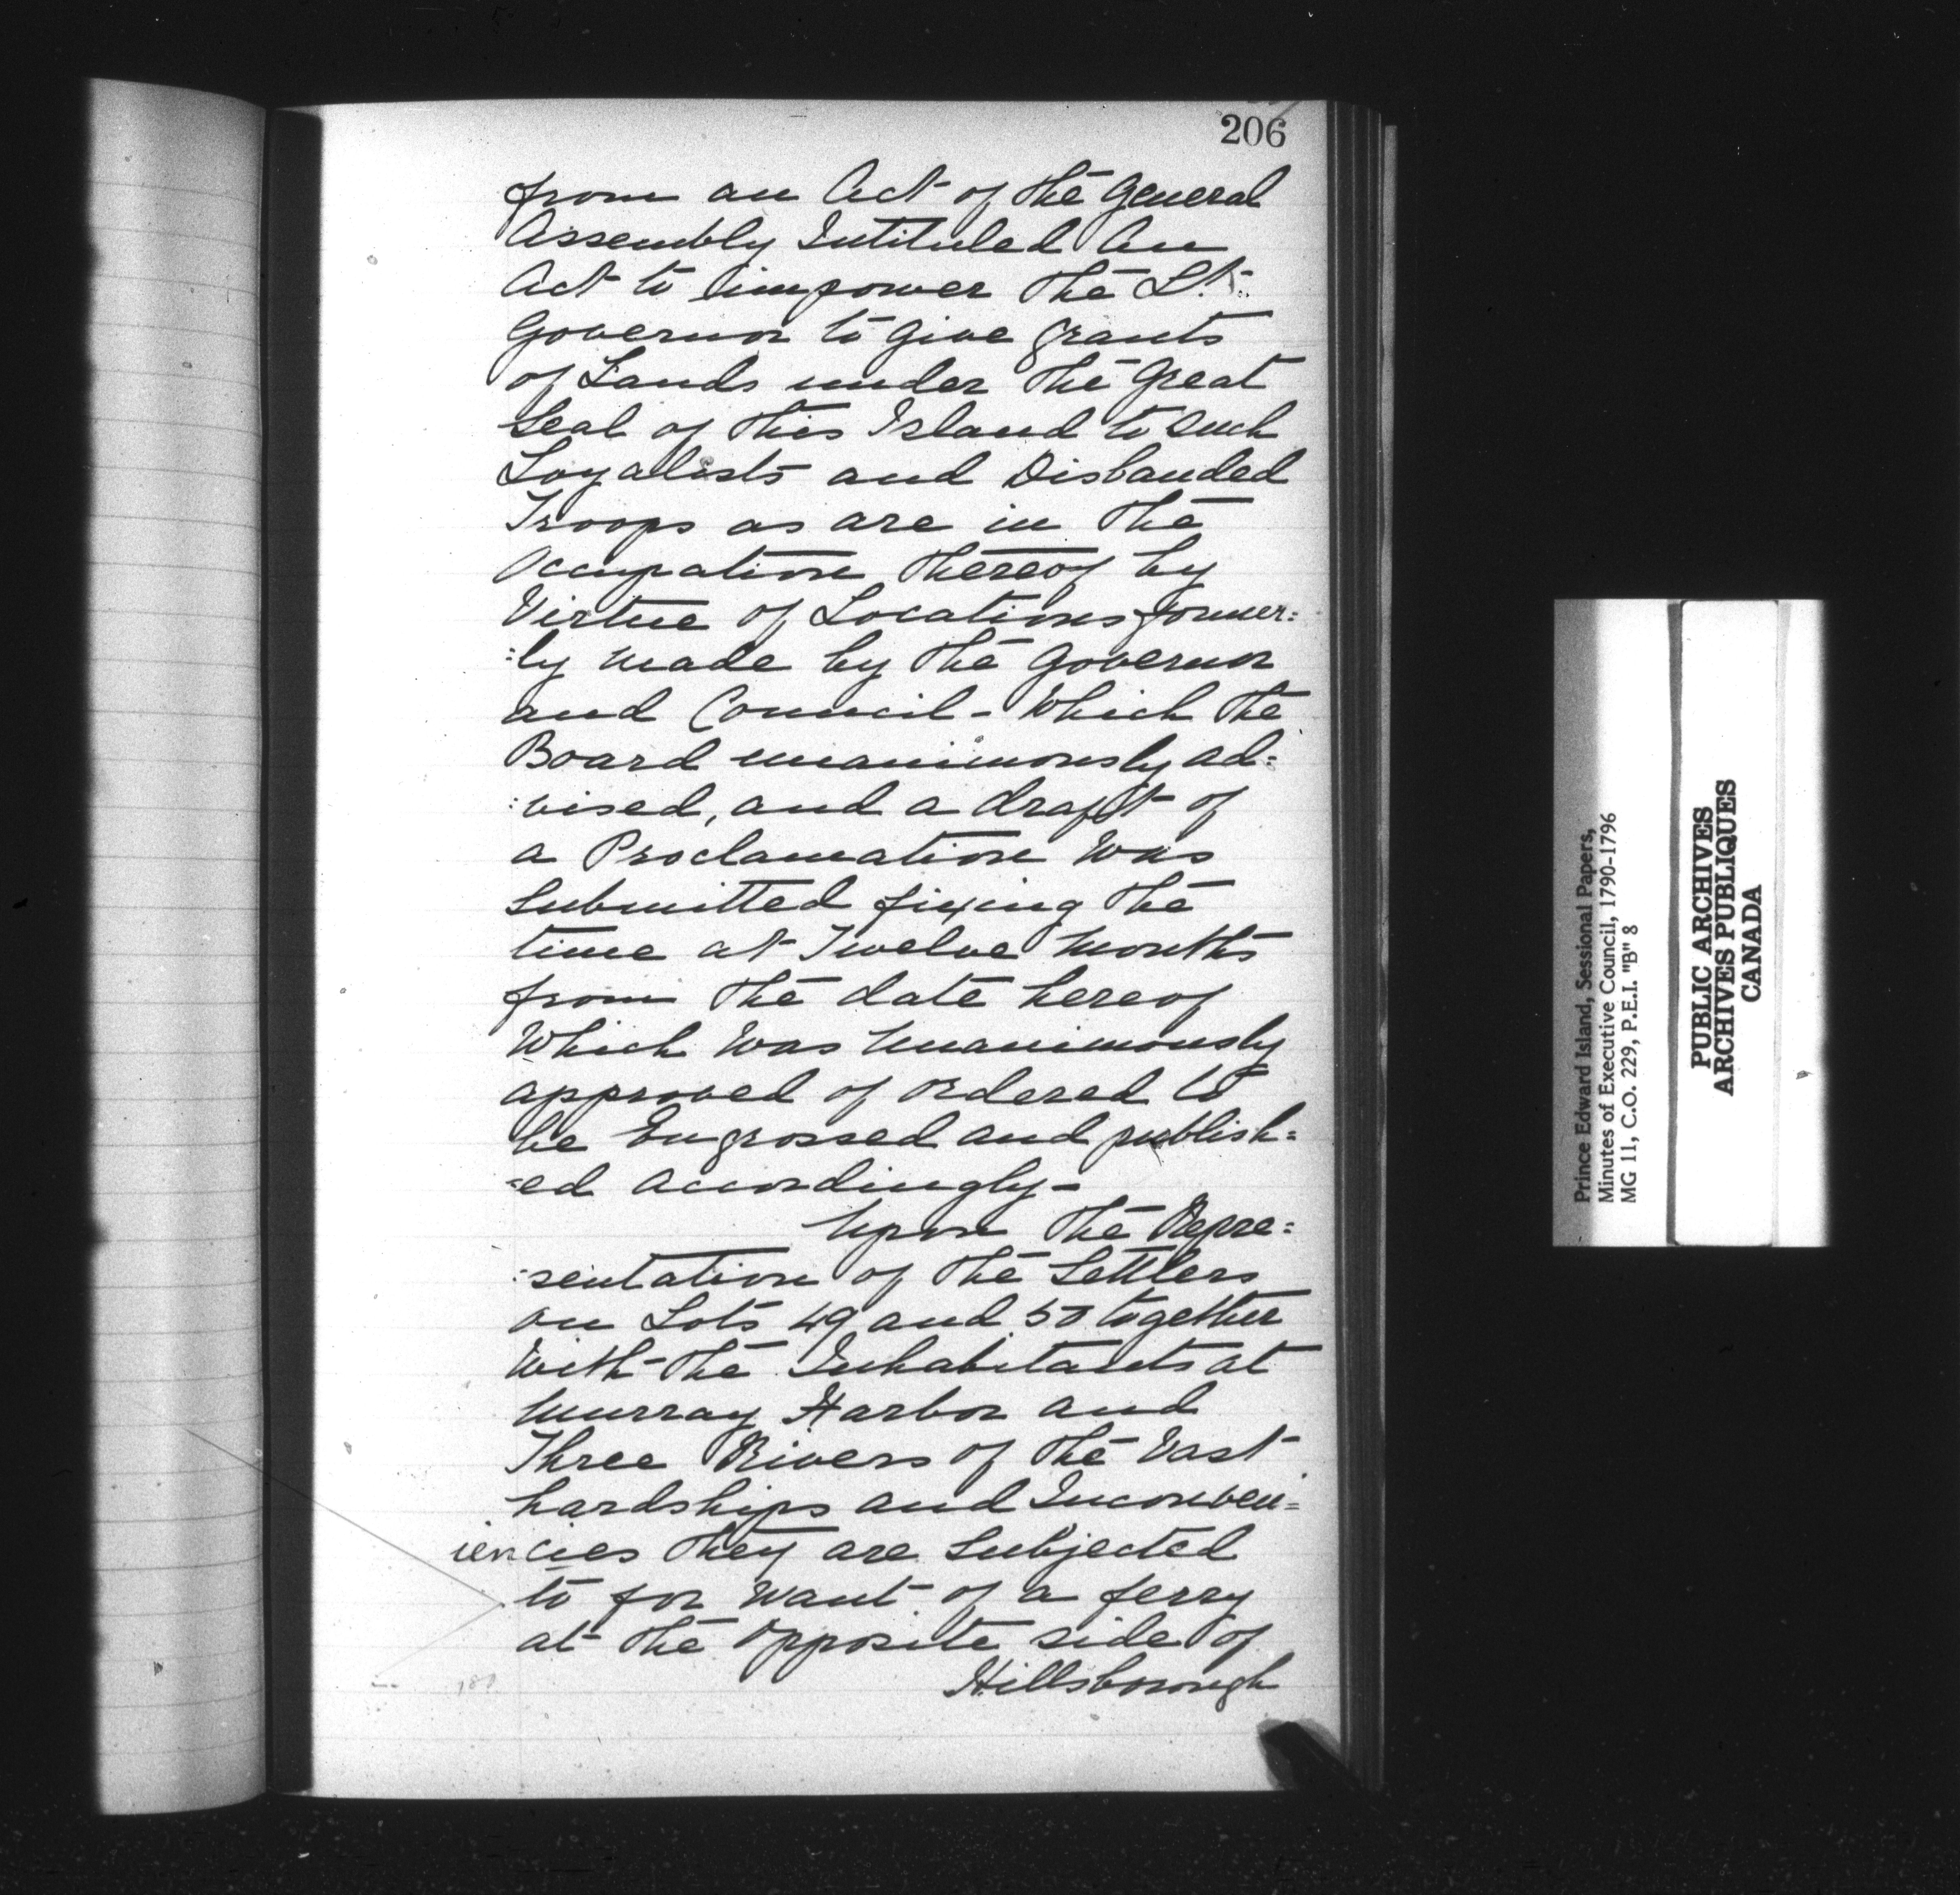 206
from an Act of the General
Assembly Intituled An
Act to impower the Lt.
Governor to give grants
of Lands under the Great
Seal of this Island to such
Loyalists and Disbanded
Troops as are in the
Occupation thereof by
Virtue of Locations former=
:ly made by the Governor
and Council - Which the
Board unanimously ad=
:vised, and a draft of
a Proclamation was
submitted fixing the
time at Twelve months
from the date hereof
Which was Unanimously
approved of ordered to
be Engrossed and publish=
=ed accordingly -
Upon the Repre=
:sentation of the Settlers
on Lots 49 and 50 together
with the Inhabitants at
Murray Harbor and
Three Rivers of the Vast
hardships and Inconven=
iencies they are Subjected
to for want of a ferry
at the opposite side of
Hillsborough
Prince Edward Island, Sessional Papers,
Minutes of Executive Council, 1790-1796
MG 11, C.O. 229, P.E.I. "B" 8
PUBLIC ARCHIVES
ARCHIVES PUBLIQUES
CANADA